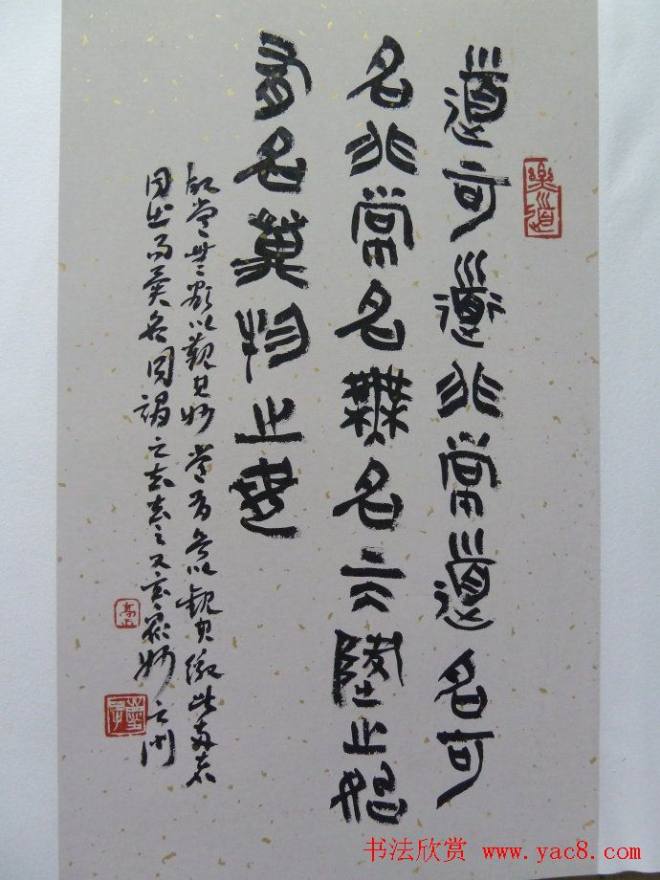 樂道
道可道非常道名可
名非常名無名天地之始
有名萬物之母
故常無欲以觀其妙常有欲以觀其徼此兩者
同出而異名同謂之玄玄之又玄眾妙之門
书法欣赏 www.yac8.com